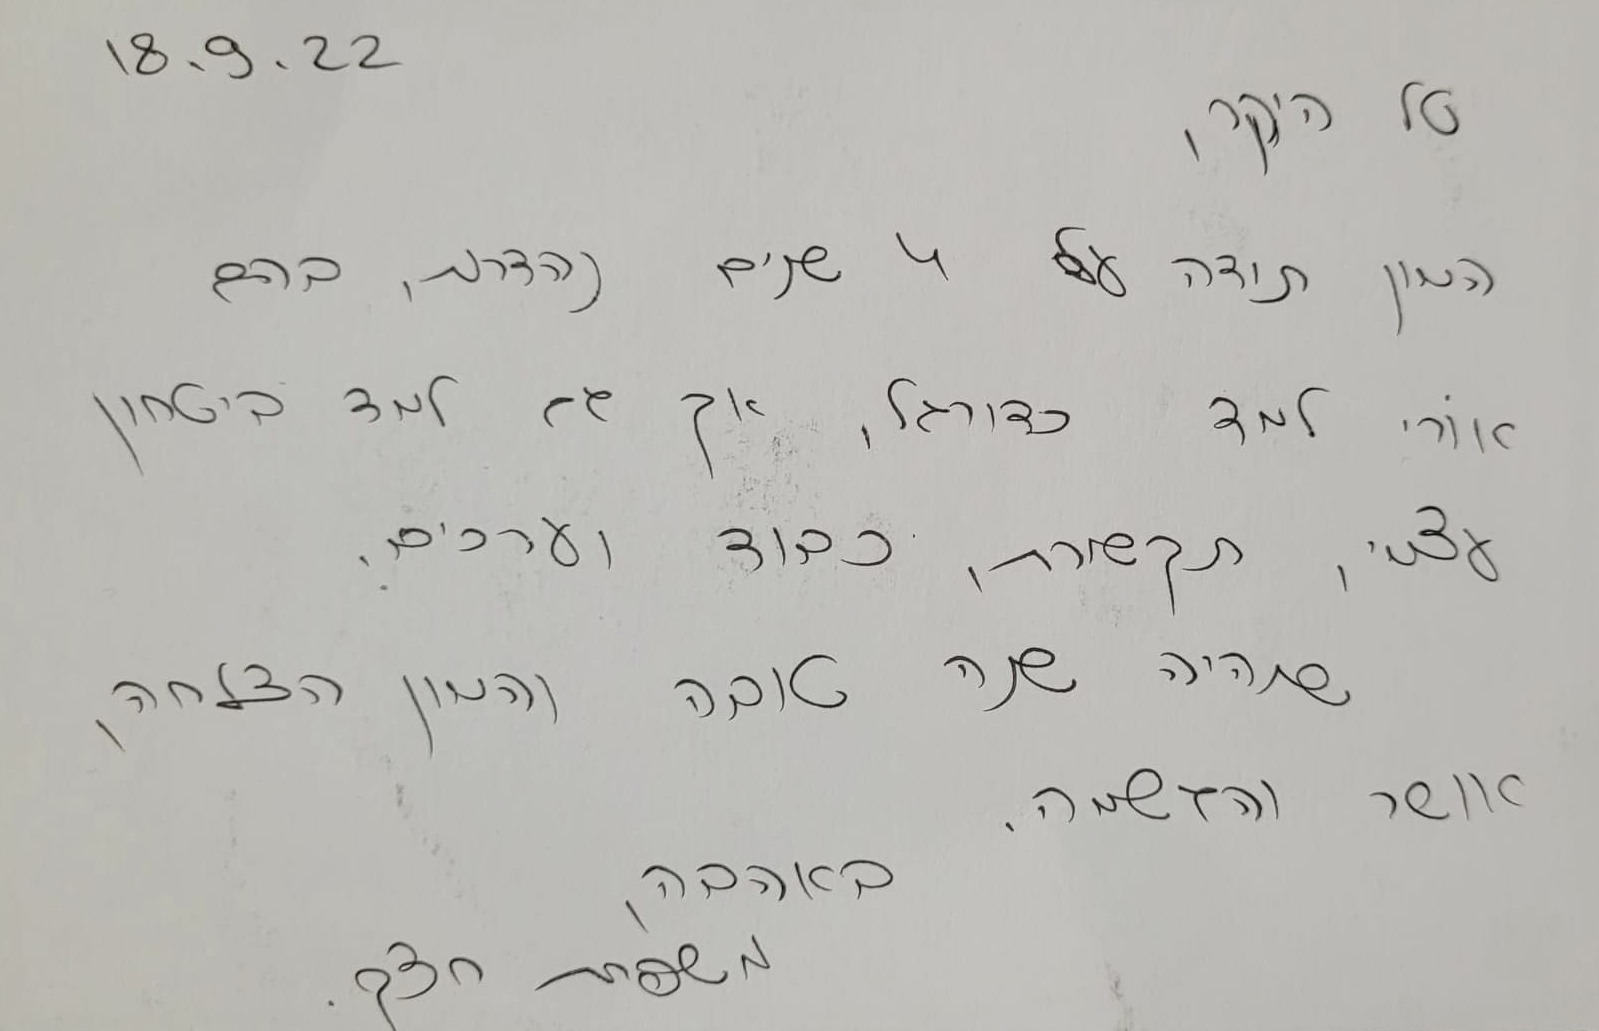 18.9.22
טל היקר,
המון תודה על 4 שנים נהדרות, בהם
אורי למד כדורגל, אך גם למד ביטחון
עצמי, תקשורת, כבוד וערכים.
שתהיה שנה טובה והמון הצלחה,
אושר והגשמה.
באהבה,
משפחת